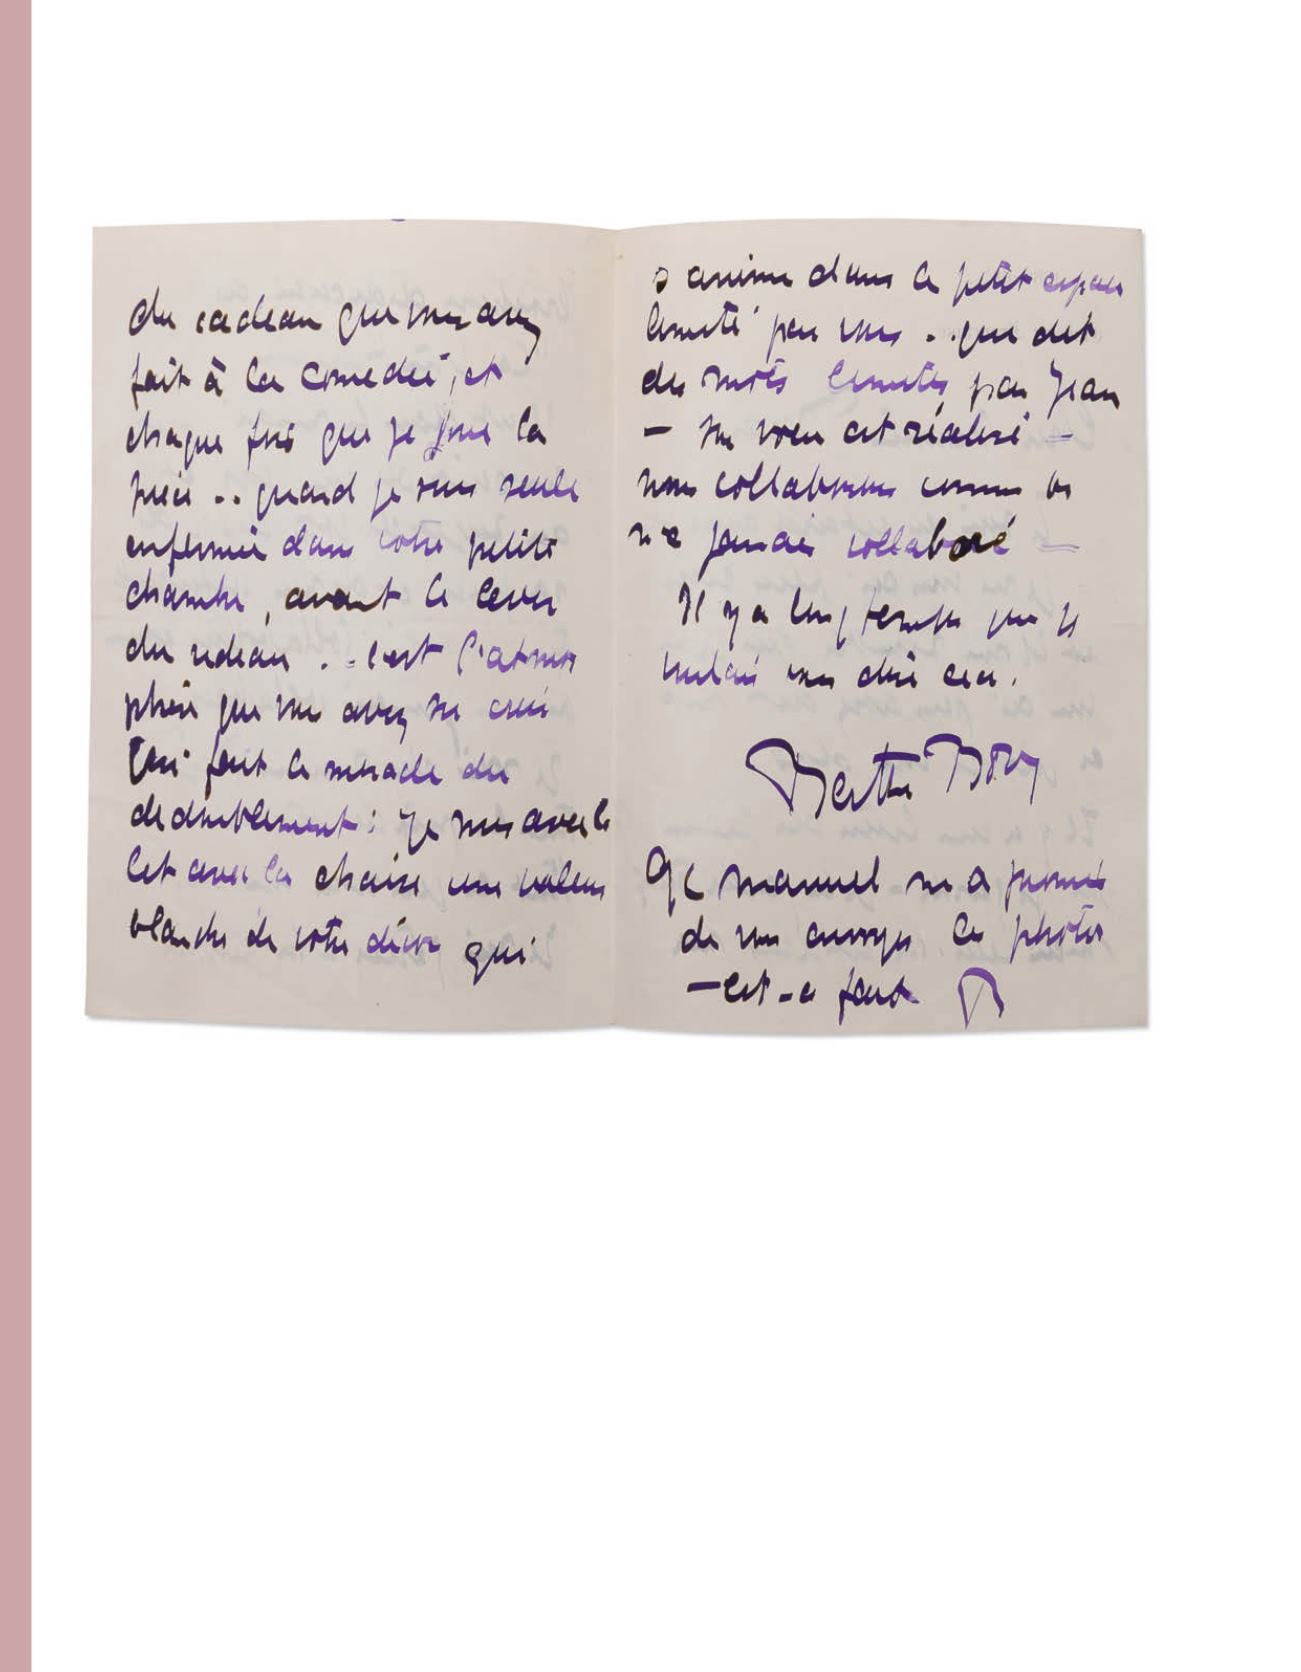 du cadeau que vous avez
fait à la comedie, et
chaque fois que je joue la
pièce .. quand je suis seule
enfermée dans votre petite
chambre, avant le lever
du rideau .. c'est l'atmos
phère que vous avez su créer
qui fait le miracle du
dedoublement : je suis avec le
lit avec la chaise une valeur
blanche de votre décor qui
s anime dans le petit espace
limité par vous .. qui dit
des mots limités par Jean
— son voeu est réalisé —
nous collaborons comme on
n'a jamais collaboré —
Il y a longtemps que je
voulais vous dire cela.
Berthe Bovy
manuel m a promis
de vous envoyer les photos
— est-ce fait B